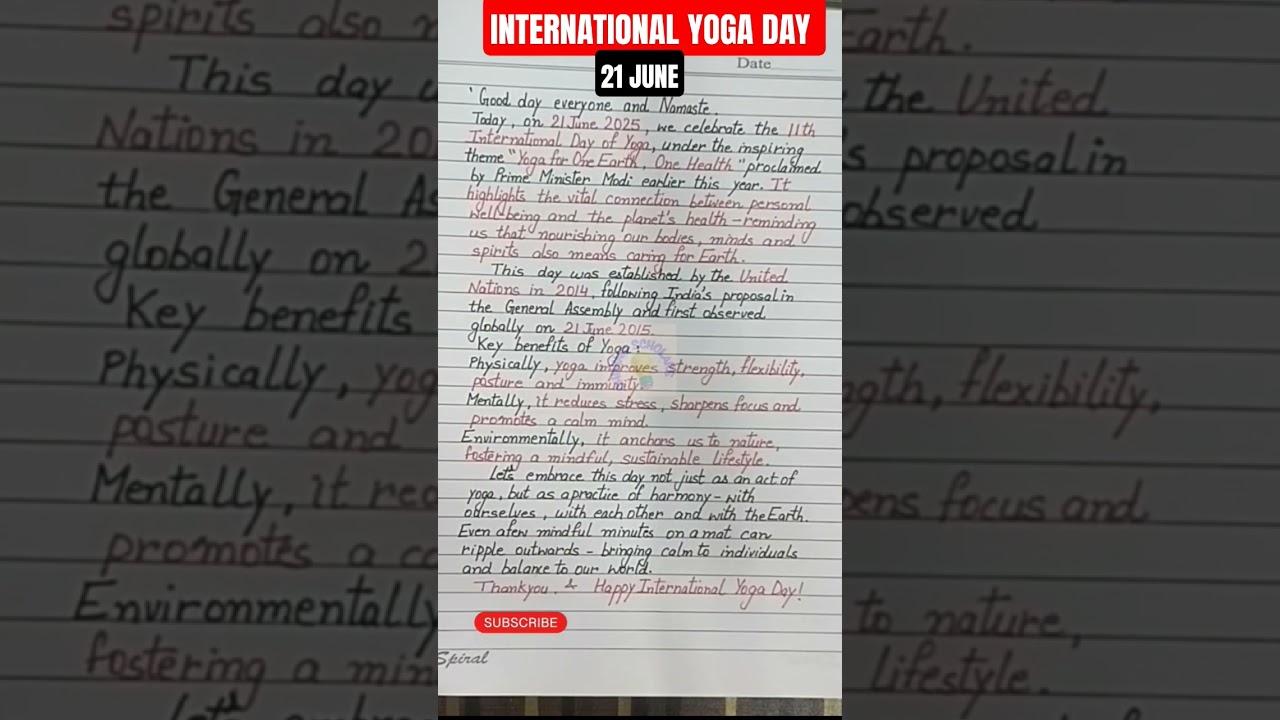 INTERNATIONAL YOGA DAY
21 JUNE
Date
'Good day everyone and Namaste.
Today, on 21 June 2025, we celebrate the 11th
International Day of Yoga, under the inspiring
theme "Yoga for One Earth, One Health" proclaimed
by Prime Minister Modi earlier this year. It
highlights the vital connection between personal
well-being and the planet's health - reminding
us that nourishing our bodies, minds and
spirits also means caring for Earth.
This day was established by the United
Nations in 2014, following India's proposal in
the General Assembly and first observed
globally on 21 June 2015.
Key benefits of Yoga:
Physically, yoga improves strength, flexibility,
posture and immunity.
Mentally, it reduces stress, sharpens focus and
promotes a calm mind.
Environmentally, it anchors us to nature,
fostering a mindful, sustainable lifestyle.
Let's embrace this day not just as an act of
yoga, but as a practice of harmony - with
ourselves, with each other and with the Earth.
Even a few mindful minutes on a mat can
ripple outwards - bringing calm to individuals
and balance to our world.
Thankyou. & Happy International Yoga Day!
SUBSCRIBE
Spiral